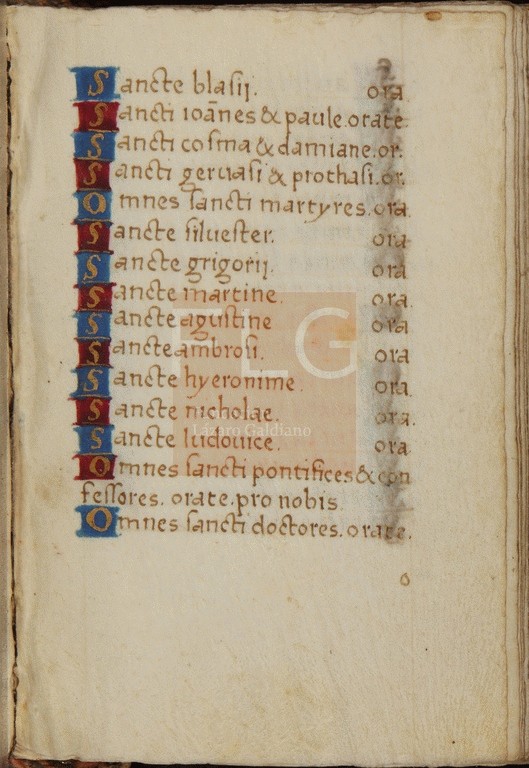 Sancte blasij. ora.
Sancti ioānes & paule. orate.
Sancti cosma & damiane. or.
Sancti geruasi & prothasi. or.
Omnes sancti martyres. ora.
Sancte siluester. ora
Sancte grigorij. ora
Sancte martine. ora.
Sancte agustine ora
Sancte ambrosi. ora
Sancte hyeronime. ora.
Sancte nicholae. ora.
Sancte ludouice. ora
Omnes sancti pontifices & con
fessores. orate. pro nobis
Omnes sancti doctores. orate.
FLG
Lázaro Galdiano